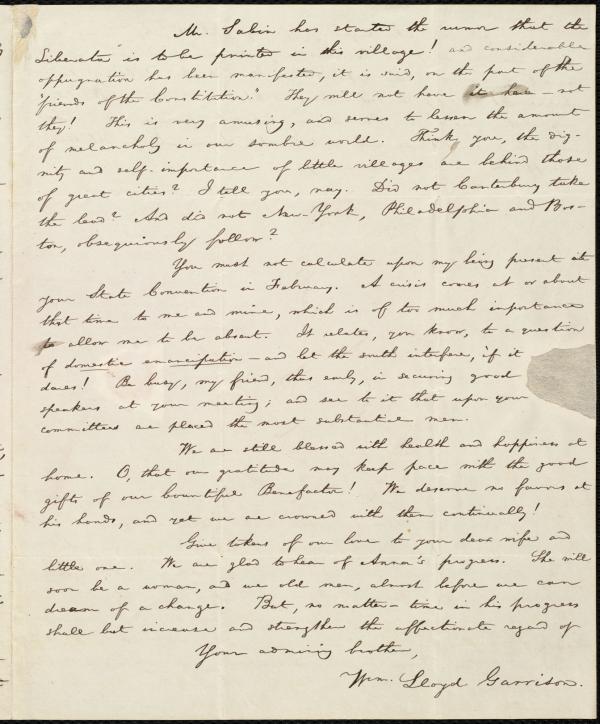 Mr. Sabin has started the rumor that the
Liberator is to be printed in this village! and considerable
oppugnation has been manifested, it is said, on the part of the
"friends of the Constitution." They will not have it here — not
they! This is very amusing, and serves to lessen the amount
of melancholy in our sombre world. Think you, the dig-
nity and self-importance of little villages are behind those
of great cities? I tell you, nay. Did not Canterbury take
the lead? And did not New-York, Philadelphia and Bos-
ton, obsequiously follow?
You must not calculate upon my being present at
your State Convention in February. A crisis comes at or about
that time to me and mine, which is of too much importance
to allow me to be absent. It relates, you know, to a question
of domestic emancipation — and let the south interfere, if it
dares! Be busy, my friend, thus early, in securing good
speakers at your meeting; and see to it that upon your
committees are placed the most substantial men.
We are still blessed with health and happiness at
home. O, that our gratitude may keep pace with the good
gifts of our bountiful Benefactor! We deserve no favors at
his hands, and yet we are crowned with them continually!
Give tokens of our love to your dear wife and
little one. We are glad to hear of Anna's progress. She will
soon be a woman, and we old men, almost before we can
dream of a change. But, no matter — time in his progress
shall but increase and strengthen the affectionate regard of
Your admiring brother,
Wm. Lloyd Garrison.